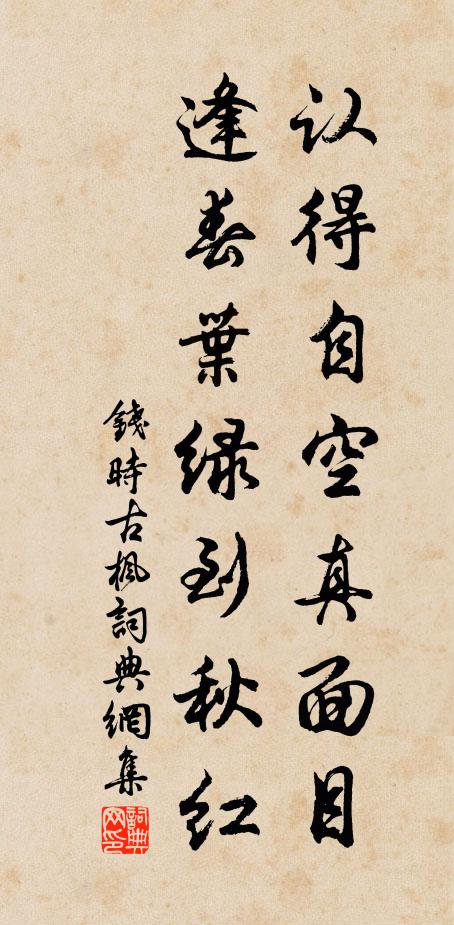 认得自空真面目
逢春葉绿到秋红
錢時古楓詞典網集
詞典网印